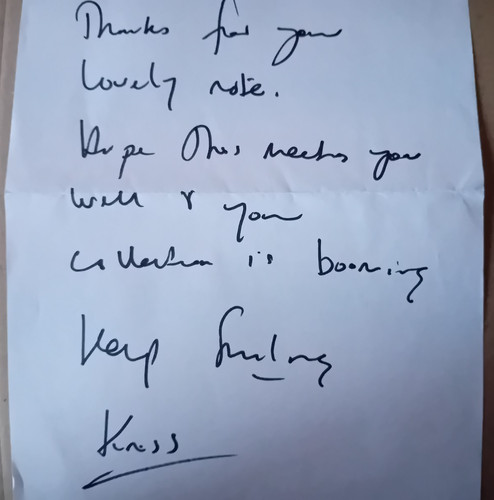 Thanks for your
lovely note.
Hope this reaches you
well & your
collection is booming
Keep Smiling
Kriss